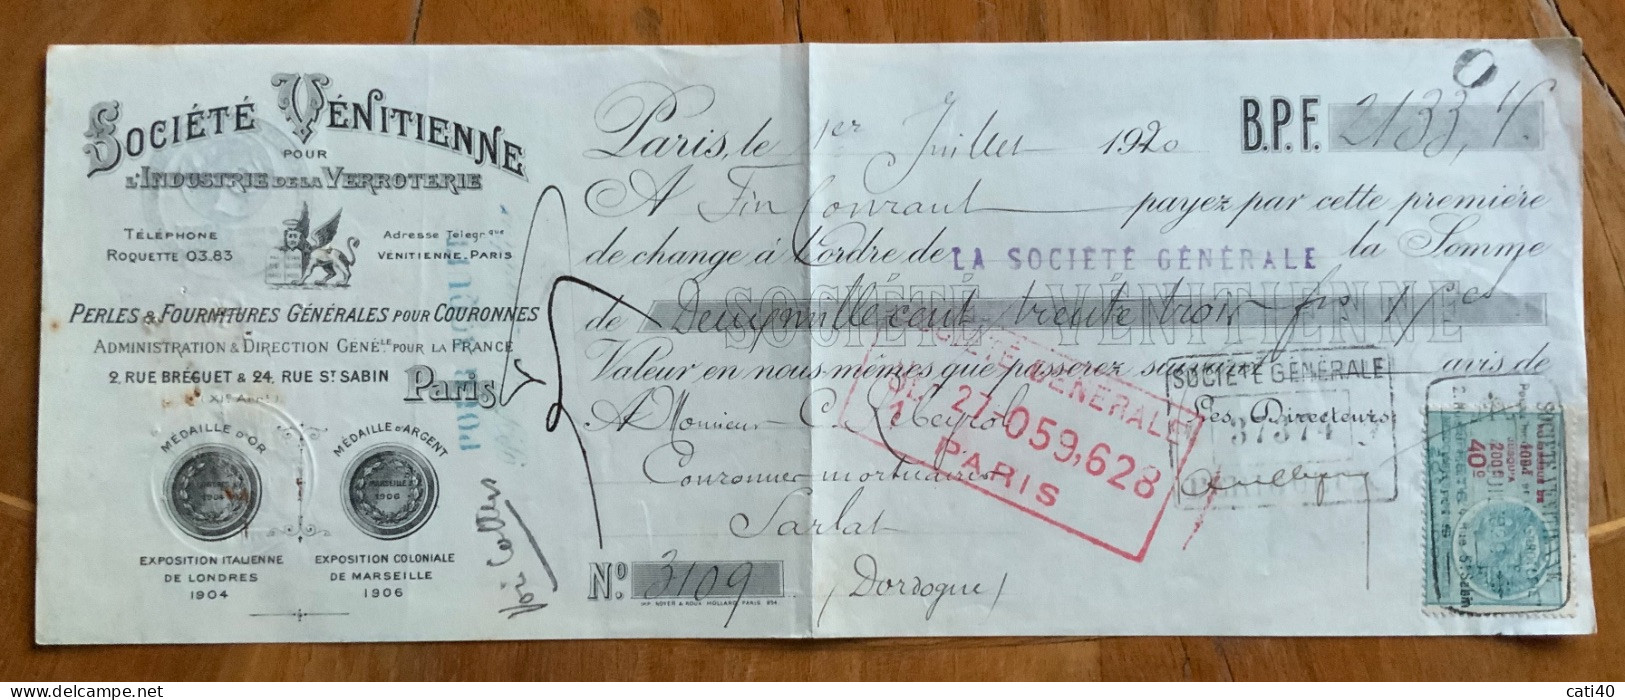 SOCIÉTÉ VÉNITIENNE
POUR
L'INDUSTRIE DE LA VERROTERIE
TÉLÉPHONE
ROQUETTE 03.83
ADRESSE TÉLÉGR.QUE
VÉNITIENNE-PARIS
PERLES & FOURNITURES GÉNÉRALES POUR COURONNES
ADMINISTRATION & DIRECTION GÉNÉ.LE POUR LA FRANCE
2, RUE BREGUET & 24, RUE ST SABIN
Paris
MÉDAILLE D'OR
LONDRES
1904
MÉDAILLE D'ARGENT
MARSEILLE
1906
EXPOSITION ITALIENNE
DE LONDRES
1904
EXPOSITION COLONIALE
DE MARSEILLE
1906
Paris, le 1er Juillet 1920 B.P.F. 2133,
A Fin Courant payez par cette première
de change à l'ordre de LA SOCIÉTÉ GÉNÉRALE la Somme
de Deux mille cent trente trois
SOCIÉTÉ VÉNITIENNE
Valeur en nous-mêmes que passerez suivant avis de
A Monsieur C. Rebeyrol Les Directeurs
Couronnes mortuaires
Sarlat
(Dordogne)
No. 3109
IMP. NOYER & ROUX HOLLARD, PARIS
SOCIÉTÉ GÉNÉRALE
27-059,628
PARIS
SOCIÉTÉ GÉNÉRALE
37374
40c
2000
cati40